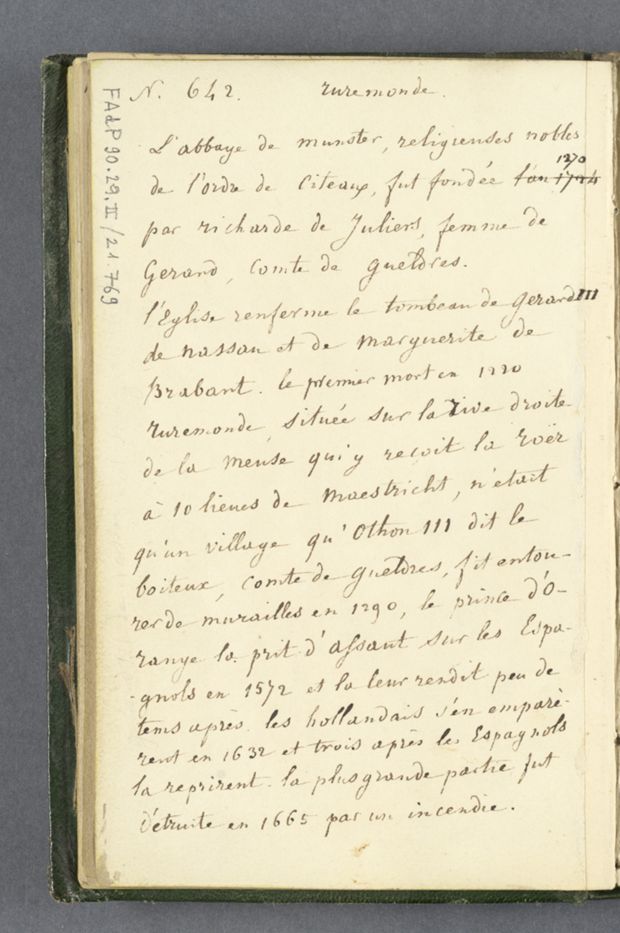 N. 642. ruremonde.
L'abbaye de munster, religieuses nobles
1270
de l'ordre de Citeaux, fut fondée l'an 1794
par richarde de Juliers, femme de
Gerard, Comte de gueldres.
l'Eglise renferme le tombeau de gerard III
de nassau et de marguerite de
Brabant. le premier mort en 1220
ruremonde, située sur la rive droite
de la meuse qui y reçoit la roër
à 10 lieues de maestricht, n'était
qu'un village qu'Othon III dit le
boiteux, Comte de gueldres, fit entou-
rer de murailles en 1290, le prince d'O-
range la prit d'assaut sur les Espa-
-gnols en 1572 et la leur rendit peu de
tems après. les hollandais s'en emparè-
rent en 1632 et trois après les Espagnols
la reprirent. la plus grande partie fut
détruite en 1665 par un incendie.
FAdP 90.29.III/21.769